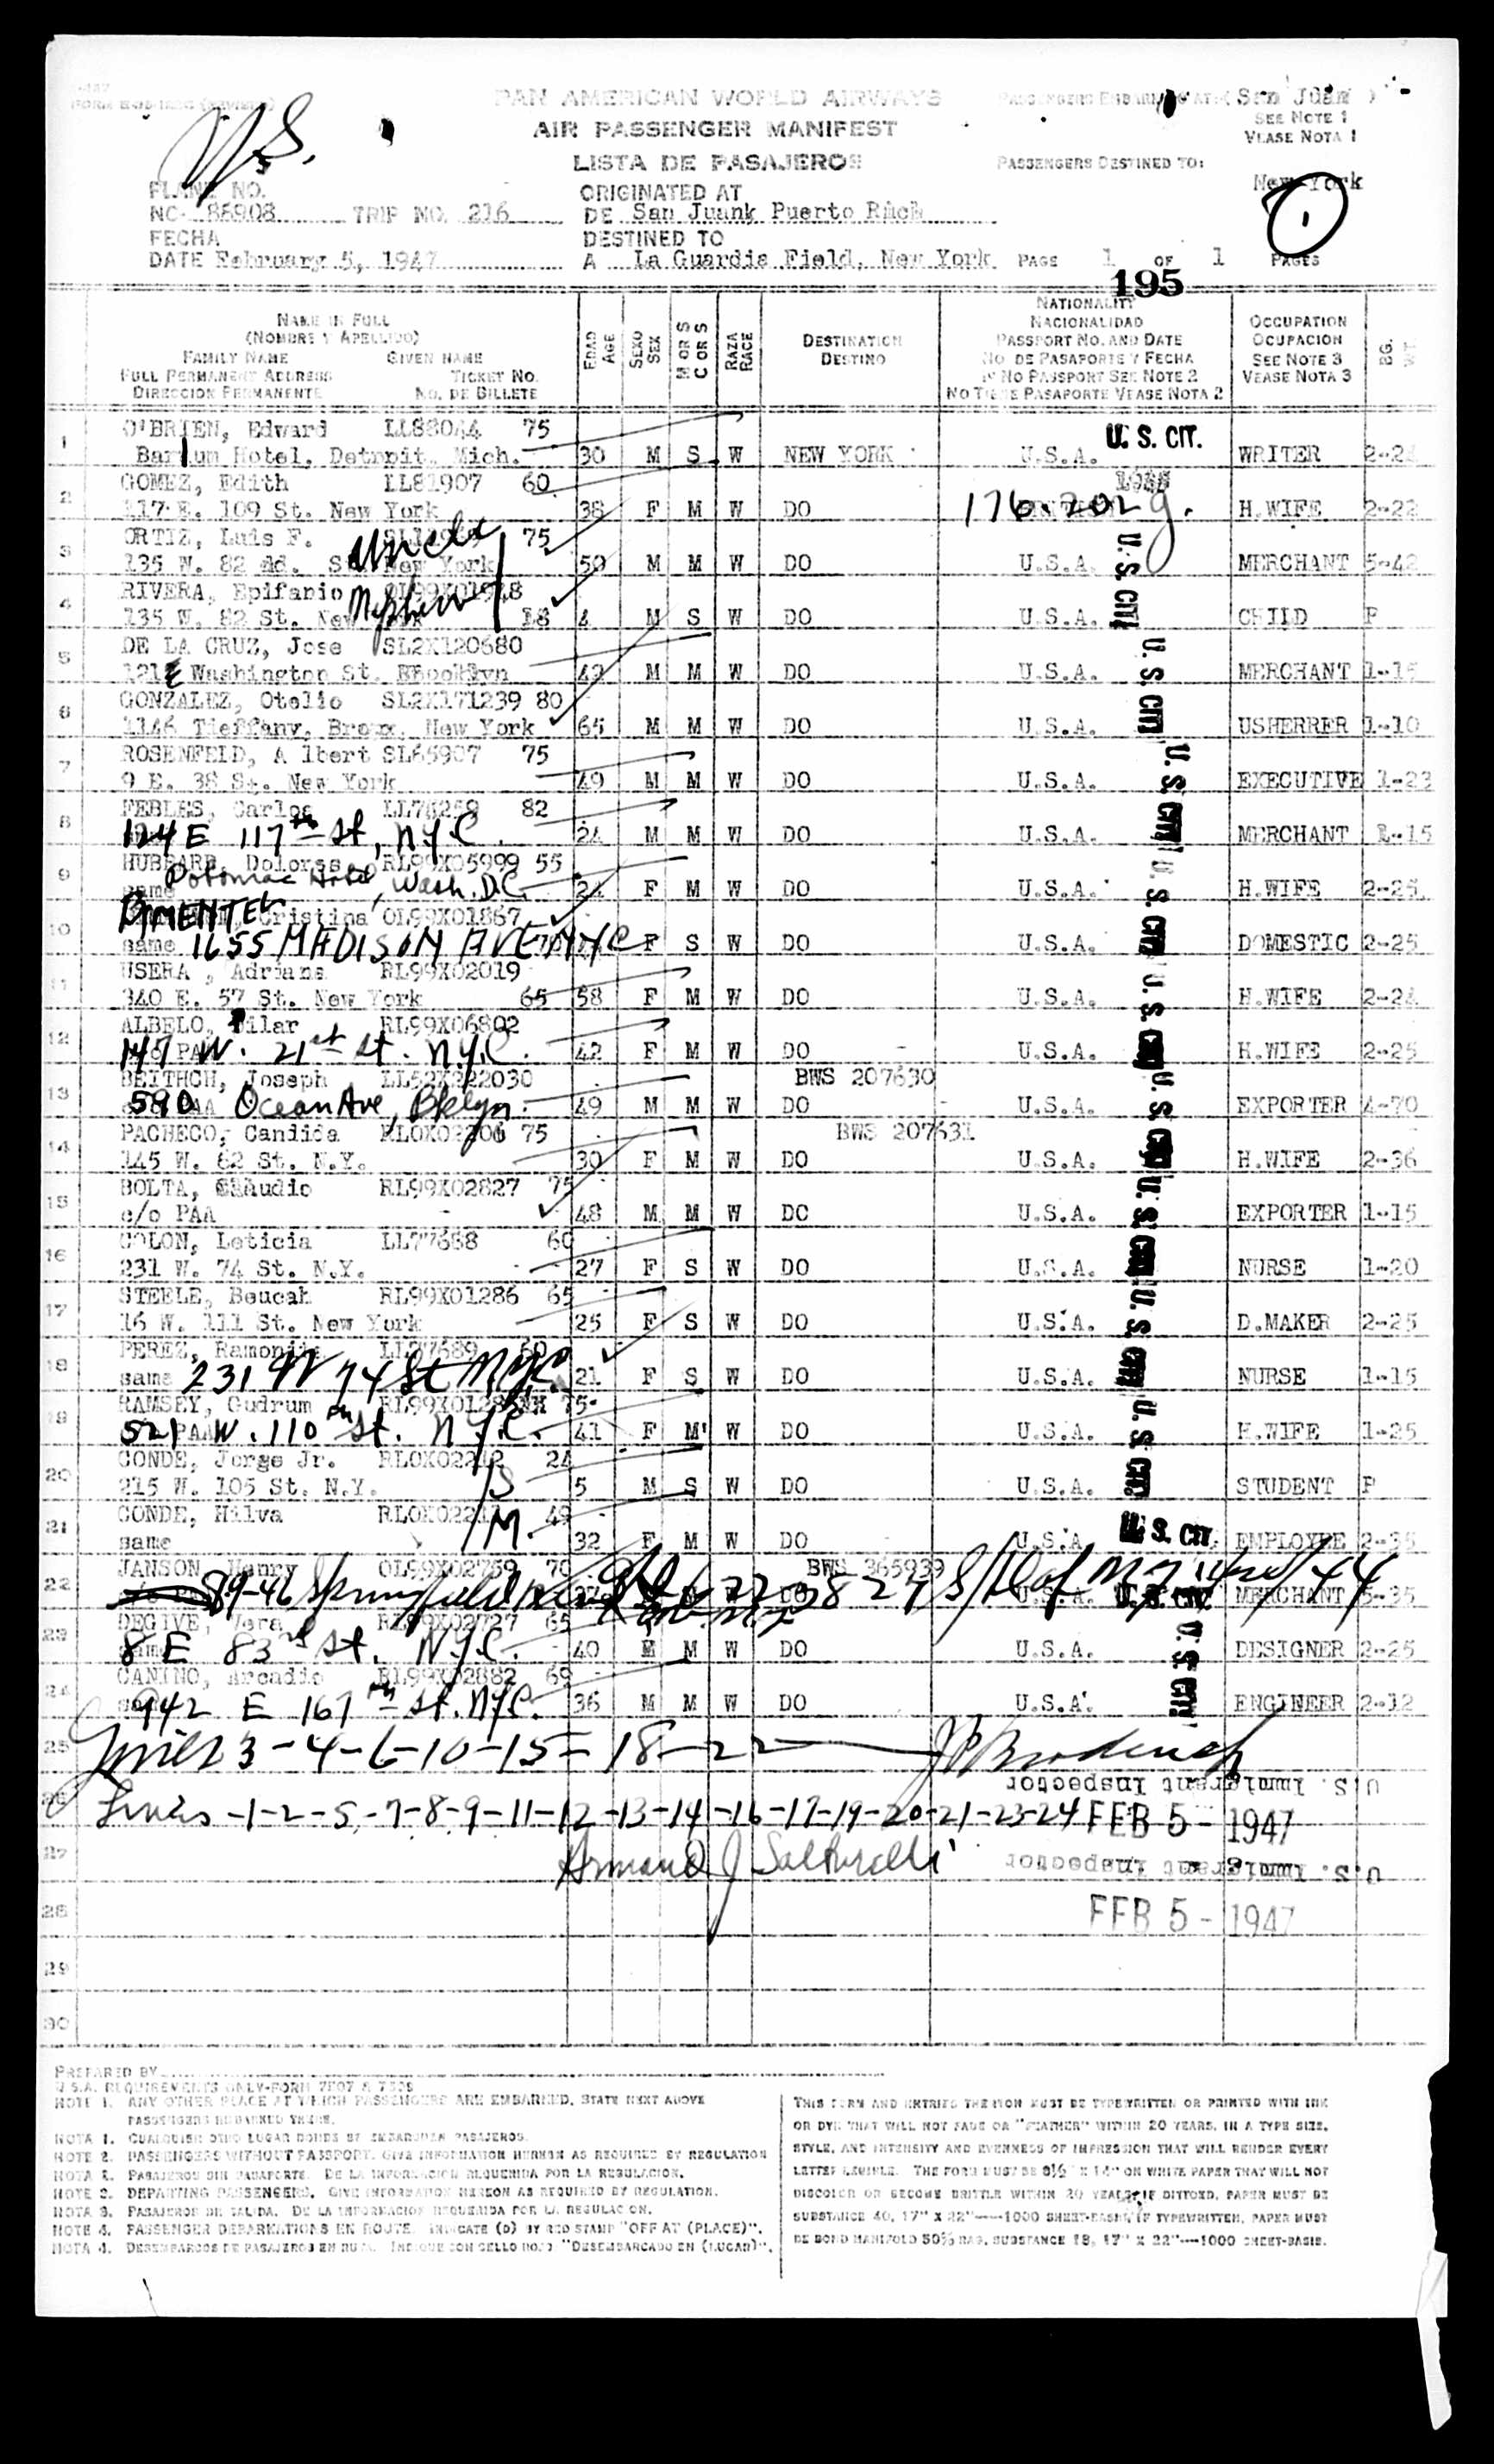 PAN AMERICAN WORLD AIRWAYS
AIR PASSENGER MANIFEST
LISTA DE PASAJEROS
San Juan
SEE NOTE 1
VEASE NOTA 1
PASSENGERS DESTINED TO:
New York
1
PLANE NO.
NC- 88908 TRIP NO. 216
ORIGINATED AT
DE San Juank Puerto Rick
FECHA
DATE February 5, 1947
DESTINED TO
A La Guardia Field, New York PAGE 1 OF 1 PAGES
195
NAME IN FULL
(NOMBRE Y APELLIDO)
FAMILY NAME GIVEN NAME
FULL PERMANENT ADDRESS TICKET NO.
DIRECCION PERMANENTE NO. DE BILLETE
EDAD AGE
SEXO SEX
M OR S
C OR S
RAZA RACE
DESTINATION
DESTINO
NATIONALITY
NACIONALIDAD
PASSPORT NO. AND DATE
NO. DE PASAPORTE Y FECHA
IF NO PASSPORT SEE NOTE 2
NO TIENE PASAPORTE VEASE NOTA 2
OCCUPATION
OCUPACION
SEE NOTE 3
VEASE NOTA 3
1 O'BRIEN, Edward LL88044 75
Barlum Hotel, Detroit, Mich. 30 M S W NEW YORK U.S.A. U. S. CIT. WRITER
2 GOMEZ, Edith LL81907 60
117 E. 109 St. New York 38 F M W DO 176.202 H.WIFE 2-22
3 ORTIZ, Luis F. 75
Uncle
135 W. 82 St. New York 50 M M W DO U.S.A. U. S. CIT. MERCHANT 5-42
4 RIVERA, Epifanio RL99X01948
Nephew
135 W. 82 St. New York 18 4 M S W DO U.S.A. CHILD
5 DE LA CRUZ, Jose SL2X120680
121 E Washington St. Brooklyn 42 M M W DO U.S.A. U. S. CIT. MERCHANT 1-15
6 GONZALEZ, Otelio SL2X171239 80
1146 Tieffany, Bronx, New York 65 M M W DO U.S.A. USHERRER 1-10
7 ROSENFELD, A lbert SL65907 75
9 E. 38 St. New York 49 M M W DO U.S.A. U. S. CIT. EXECUTIVE 1-23
8 FEBLES, Carlos LL76259 82
124 E 117th St, N.Y.C. 24 M M W DO U.S.A. MERCHANT 1-15
9 HUBBARD, Dolores RL99X05999 55
same Potomac Hotel, Wash. D.C. 24 F M W DO U.S.A. U. S. CIT. H.WIFE 2-25
10 PIMENTEL Cristina OL99X01867
same 1655 MADISON AVE NYC F S W DO U.S.A. DOMESTIC 2-25
11 USERA, Adriana RL99X02019
340 E. 57 St. New York 65 58 F M W DO U.S.A. U. S. CIT. H.WIFE 2-24
12 ALBELO, Pilar RL99X06802
147 W. 21st St. N.Y.C. 42 F M W DO U.S.A. H.WIFE 2-25
13 BEITHCH, Joseph LL52X222030 BWS 207630
590 Ocean Ave, Bklyn. 49 M M W DO U.S.A. U. S. CIT. EXPORTER 4-70
14 PACHECO, Candida RLOX02206 75 BWS 207631
145 W. 62 St. N.Y. 30 F M W DO U.S.A. H.WIFE 2-36
15 BOLTA, Claudio RL99X02827 75
c/o PAA 48 M M W DO U.S.A. U. S. CIT. EXPORTER 1-15
16 COLON, Leticia LL77688 60
231 W. 74 St. N.Y. 27 F S W DO U.S.A. NURSE 1-20
17 STEELE, Beucah RL99X01286 65
16 W. 111 St. New York 25 F S W DO U.S.A. U. S. CIT. D.MAKER 2-25
18 PEREZ, Ramonita LL77689 60
same 231 W 74 St N.Y.C. 21 F S W DO U.S.A. NURSE 1-15
19 RAMSEY, Gudrum 75
521 W. 110th St. N.Y.C. 41 F M W DO U.S.A. U. S. CIT. H.WIFE 1-25
20 CONDE, Jorge Jr. RLOX02242 24
215 W. 105 St. N.Y. S 5 M S W DO U.S.A. STUDENT
21 CONDE, Hilva 49
same M. 32 F M W DO U.S.A. U. S. CIT. EMPLOYEE 2-35
22 JANSON, Henry OL99X02759 70 BWS 365939
89-46 Springfield MERCHANT
23 DEGIVE, Vera RL99X02727 65
8 E 83rd St. N.Y.C. 40 M W DO U.S.A. U. S. CIT. DESIGNER 2-25
24 CANINO, Arcadio RL99X02882 69
942 E 167th St. N.Y.C. 36 M M W DO U.S.A. ENGINEER 2-12
25 Lines 3-4-6-10-15-18-22
26 Lines -1-2-5-7-8-9-11-12-13-14-16-17-19-20-21-23-24
U.S. Immigrant Inspector
FEB 5 - 1947
27 Armand J
U.S. Immigrant Inspector
28
FEB 5 - 1947
29
30
PREPARED BY
U.S.A. REQUIREMENTS ONLY-FORM
NOTE 1. ANY OTHER PLACE AT WHICH PASSENGERS ARE EMBARKED, STATE NEXT ABOVE
PASSENGERS EMBARKED THERE.
NOTA 1. CUALQUIER OTRO LUGAR DONDE SE EMBARQUEN PASAJEROS.
NOTE 2. PASSENGERS WITHOUT PASSPORT. GIVE INFORMATION HEREON AS REQUIRED BY REGULATION
NOTA 2. PASAJEROS SIN PASAPORTE. DE LA INFORMACION REQUERIDA POR LA REGULACION.
NOTE 3. DEPARTING PASSENGERS. GIVE INFORMATION HEREON AS REQUIRED BY REGULATION.
NOTA 3. PASAJEROS DE SALIDA. DE LA INFORMACION REQUERIDA POR LA REGULACION.
NOTE 4. PASSENGER DEBARKATIONS EN ROUTE. INDICATE (D) BY RED STAMP "OFF AT (PLACE)".
NOTA 4. DESEMBARCOS DE PASAJEROS EN RUTA. INDIQUE CON SELLO ROJO "DESEMBARCADO EN (LUGAR)".
THIS FORM AND ENTRIES THEREON MUST BE TYPEWRITTEN OR PRINTED WITH INK
OR DYE THAT WILL NOT FADE OR "FEATHER" WITHIN 20 YEARS, IN A TYPE SIZE,
STYLE, AND INTENSITY AND EVENNESS OF IMPRESSION THAT WILL RENDER EVERY
LETTER LEGIBLE. THE FORM MUST BE 8½" X 14" ON WHITE PAPER THAT WILL NOT
DISCOLOR OR BECOME BRITTLE WITHIN 20 YEARS. IF DITTOED, PAPER MUST BE
SUBSTANCE 40, 17" X 22"----1000 SHEET-BASIS, IF TYPEWRITTEN, PAPER MUST
BE BOND MANIFOLD 50% RAG, SUBSTANCE 18, 17" X 22"----1000 SHEET-BASIS.